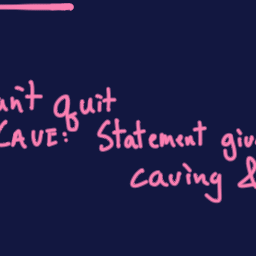 an't quit
CAVE: Statement giv
caving &